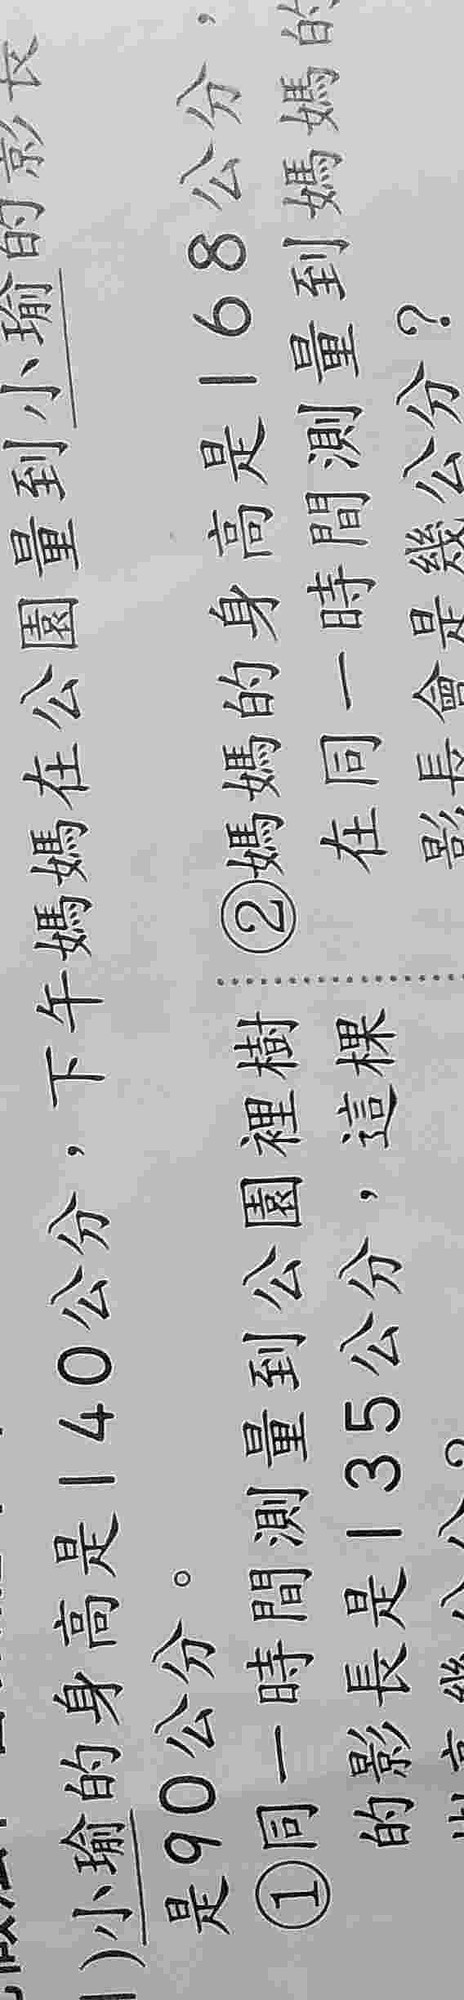 1)小瑜的身高是140公分，下午媽媽在公園量到小瑜的影長
是90公分。
①同一時間測量到公園裡樹
的影長是135公分，這棵
②媽媽的身高是168公分，
在同一時間測量到媽媽的
影長會是幾公分？